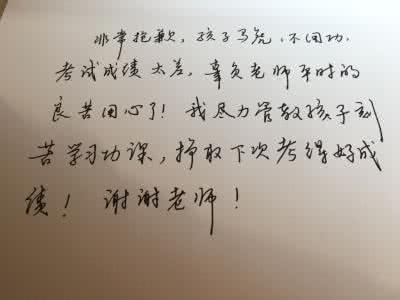 非常抱歉，孩子马虎，不用功，
考试成绩太差，辜负老师平时的
良苦用心了！我尽力管教孩子刻
苦学习功课，挣取下次考得好成
绩！谢谢老师！